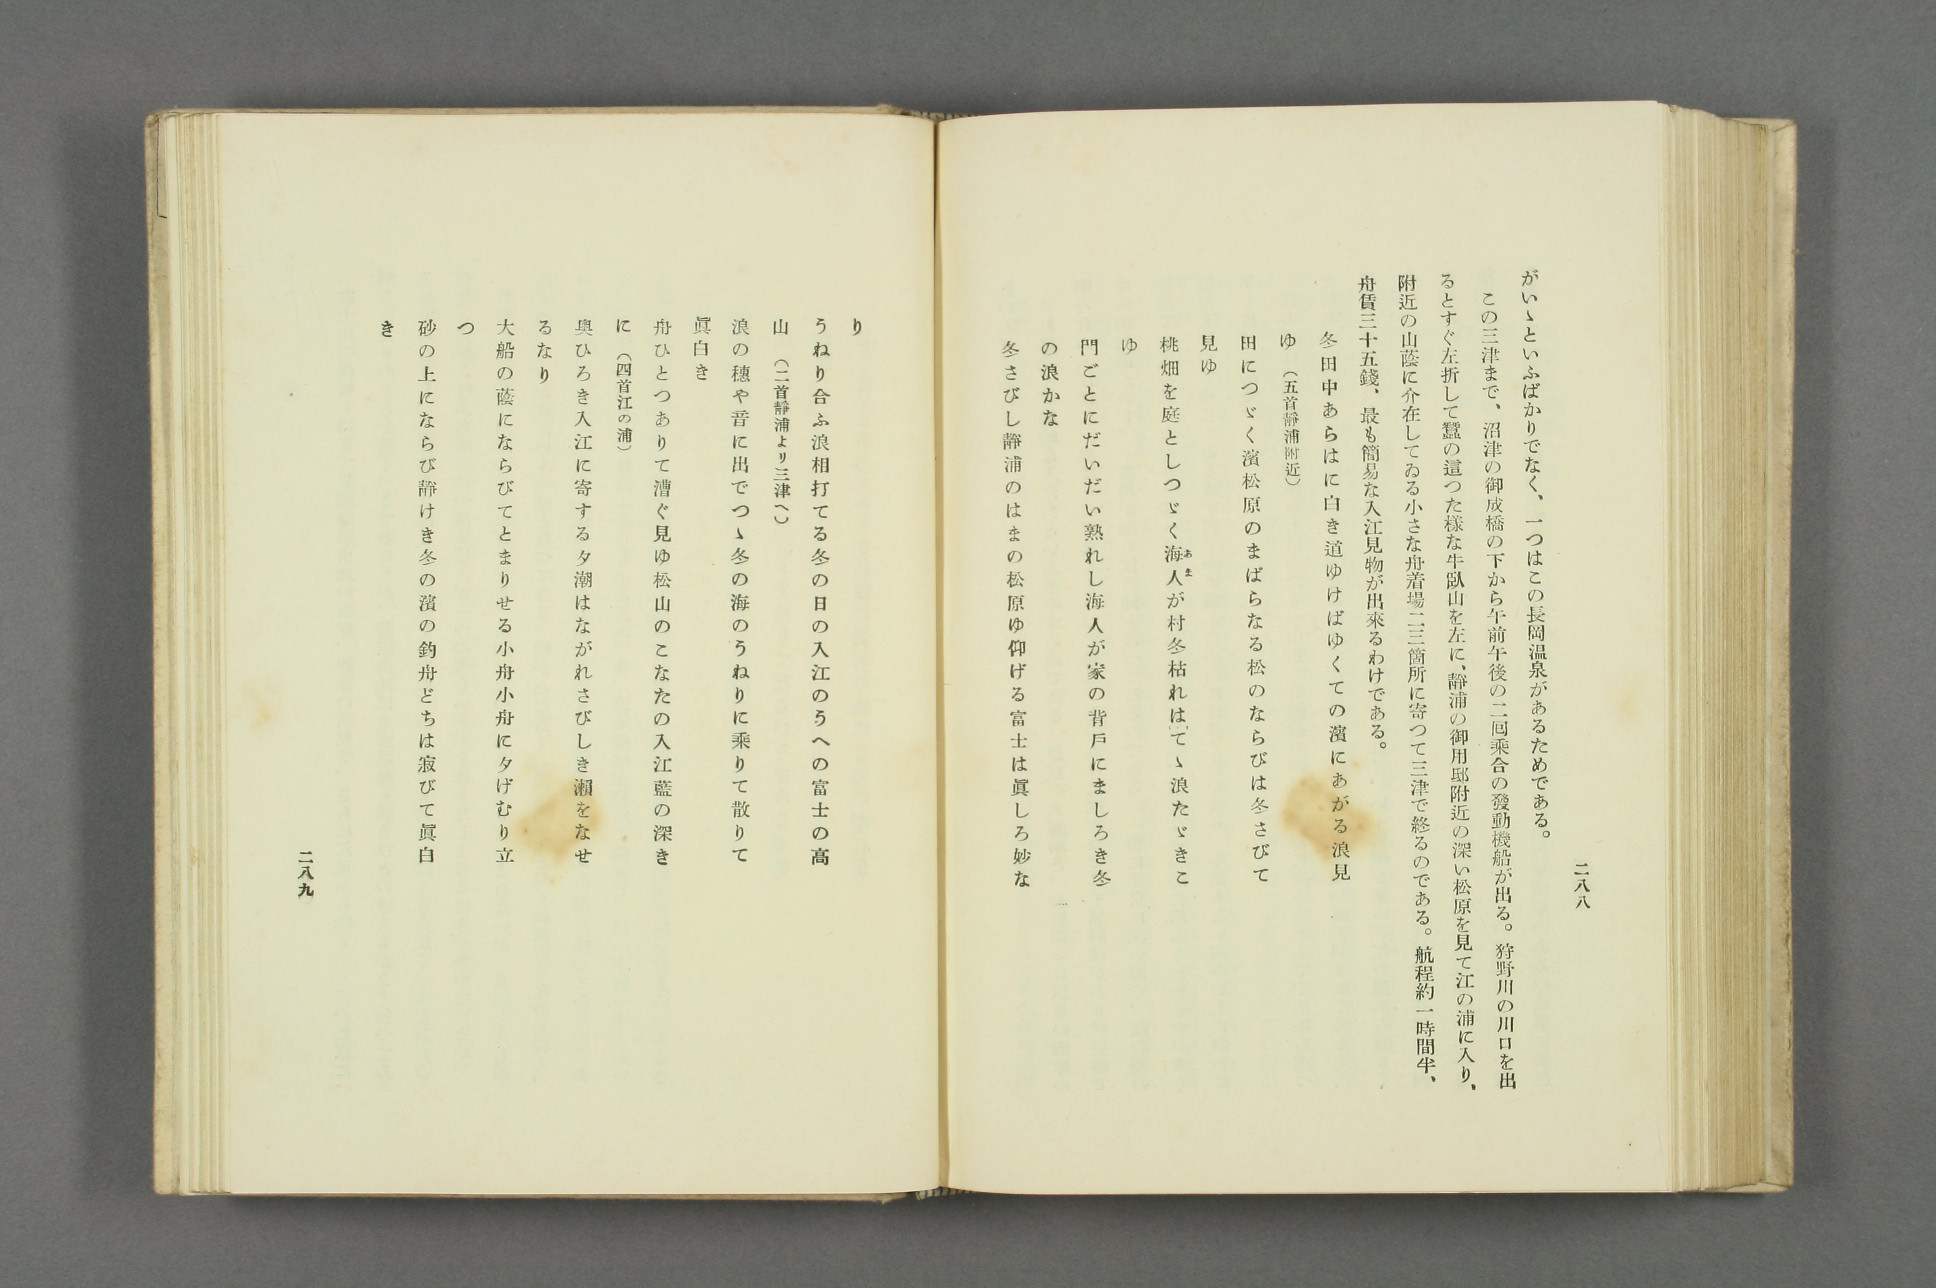 二八八
がいゝといふばかりでなく、一つはこの長岡温泉があるためである。
この三津まで、沼津の御成橋の下から午前午後の二囘乘合の發動機船が出る。狩野川の川口を出
るとすぐ左折して蠶の這つた樣な牛臥山を左に、靜浦の御用邸附近の深い松原を見て江の浦に入り、
附近の山蔭に介在してゐる小さな舟着場二三箇所に寄つて三津で終るのである。航程約一時間半、
舟賃三十五錢、最も簡易な入江見物が出來るわけである。
冬田中あらはに白き道ゆけばゆくての濱にあがる浪見
ゆ （五首靜浦附近）
田につゞく濱松原のまばらなる松のならびは冬さびて
見ゆ
桃畑を庭としつゞく海人が村冬枯れはてゝ浪たゞきこ
あま
ゆ
門ごとにだいだい熟れし海人が家の背戸にましろき冬
の浪かな
冬さびし靜浦のはまの松原ゆ仰げる富士は眞しろ妙な
り
うねり合ふ浪相打てる冬の日の入江のうへの富士の高
山 （二首靜浦より三津へ）
浪の穗や音に出でつゝ冬の海のうねりに乘りて散りて
眞白き
舟ひとつありて漕ぐ見ゆ松山のこなたの入江藍の深き
に （四首江の浦）
奧ひろき入江に寄する夕潮はながれさびしき瀨をなせ
るなり
大船の蔭にならびてとまりせる小舟小舟に夕げむり立
つ
砂の上にならび靜けき冬の濱の釣舟どちは寂びて眞白
き
二八九